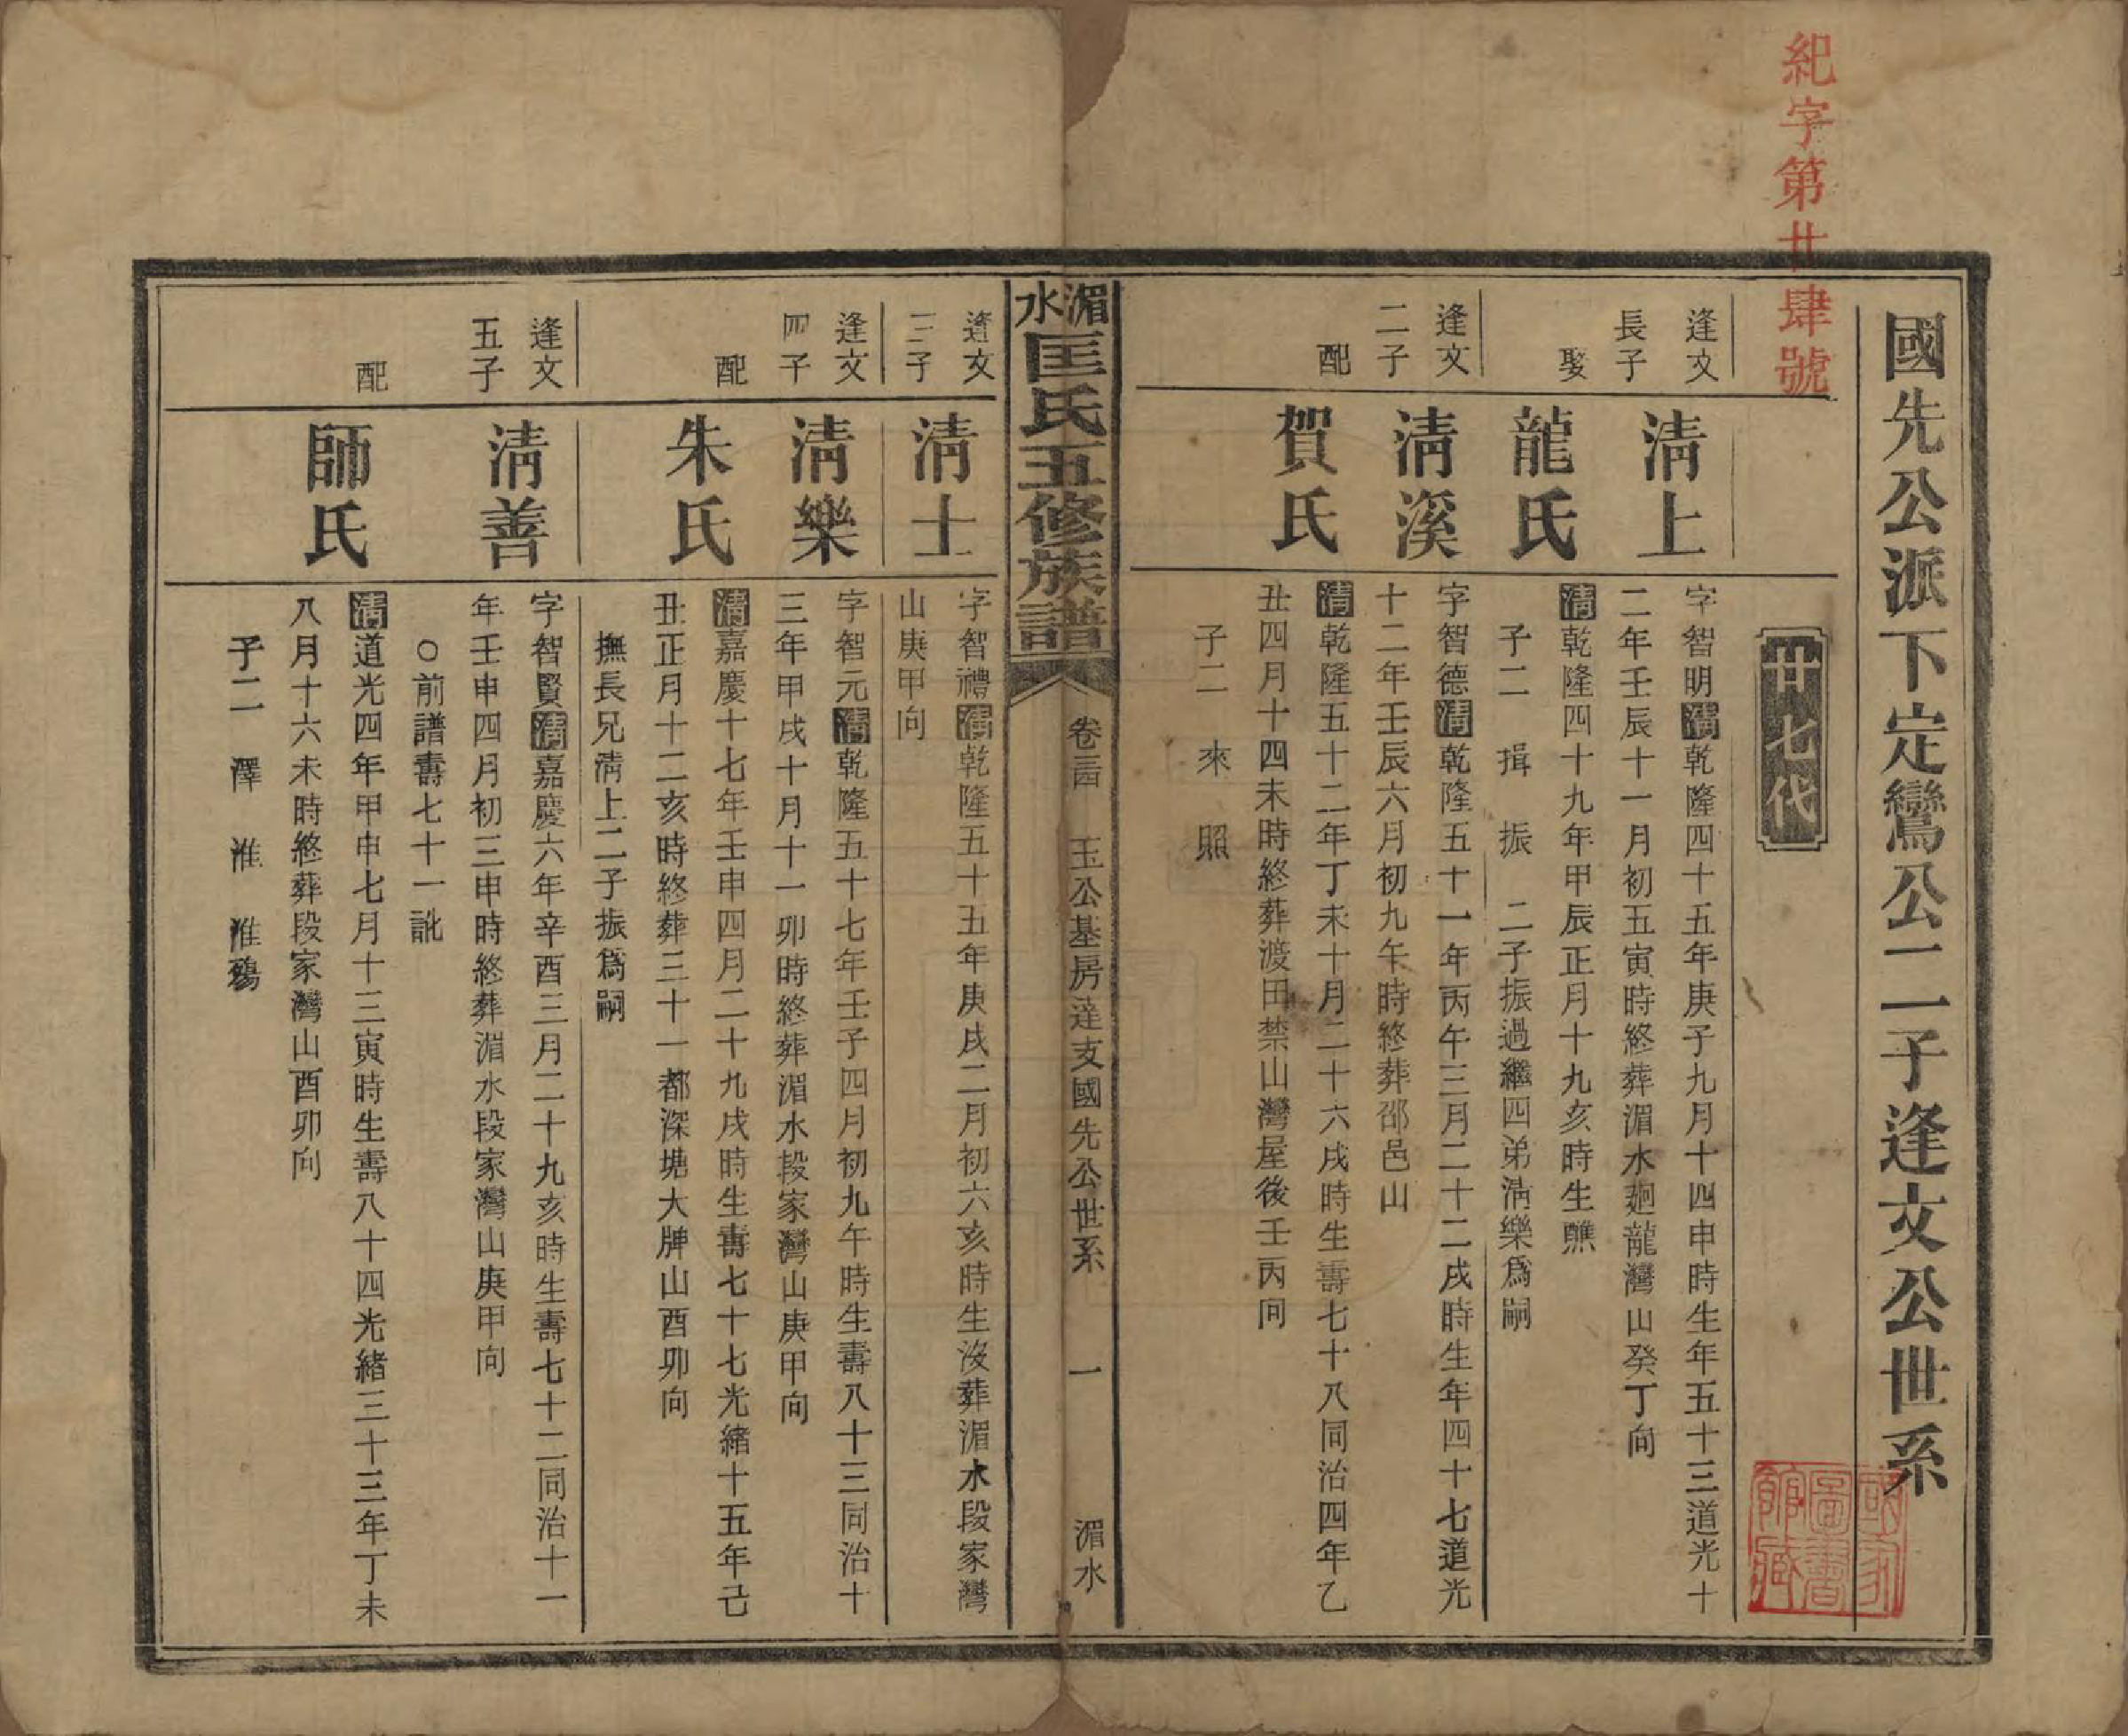 紀字第廿肆號
國先公派下定鸞公二子逢文公世系
廿七代
逢文
長子
清上
字智明清乾隆四十五年庚子九月十四申時生年五十三道光十
二年壬辰十一月初五寅時終葬湄水廻龍灣山癸丁向
娶
龍氏
清乾隆四十九年甲辰正月十九亥時生醮
子二 揖 振 二子振過繼四弟清樂爲嗣
逢文
二子
清溪
字智德清乾隆五十一年丙午三月二十二戌時生年四十七道光
十二年壬辰六月初九午時終葬邵邑山
配
賀氏
清乾隆五十二年丁未十月二十六戌時生壽七十八同治四年乙
丑四月十四未時終葬渡田禁山灣屋後壬丙向
子二 來 照
湄水匡氏五修族譜
卷三四 玉公基房達支國先公世系 一 湄水
逢文
三子
清士
字智禮清乾隆五十五年庚戌二月初六亥時生沒葬湄水段家灣
山庚甲向
逢文
四子
清樂
字智元清乾隆五十七年壬子四月初九午時生壽八十三同治十
三年甲戌十月十一卯時終葬湄水段家灣山庚甲向
配
朱氏
清嘉慶十七年壬申四月二十九戌時生壽七十七光緒十五年己
丑正月十二亥時終葬三十一都深塘大牌山酉卯向
撫長兄清上二子振爲嗣
逢文
五子
清善
字智賢清嘉慶六年辛酉三月二十九亥時生壽七十二同治十一
年壬申四月初三申時終葬湄水段家灣山庚甲向
○前譜壽七十一訛
配
師氏
清道光四年甲申七月十三寅時生壽八十四光緒三十三年丁未
八月十六未時終葬段家灣山酉卯向
子二 澤 淮 淮殤
國家圖書館藏